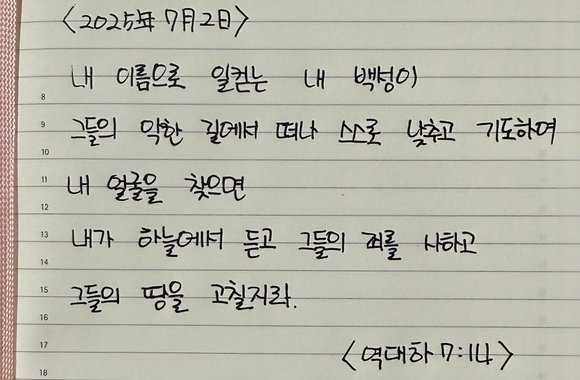 <2025年 7月 2日>
내 이름으로 일컫는 내 백성이
8
그들의 악한 길에서 떠나 스스로 낮추고 기도하여
9
10
내 얼굴을 찾으면
11
12
내가 하늘에서 듣고 그들의 죄를 사하고
13
14
그들의 땅을 고칠지라.
15
16
<역대하 7:14>
17
18